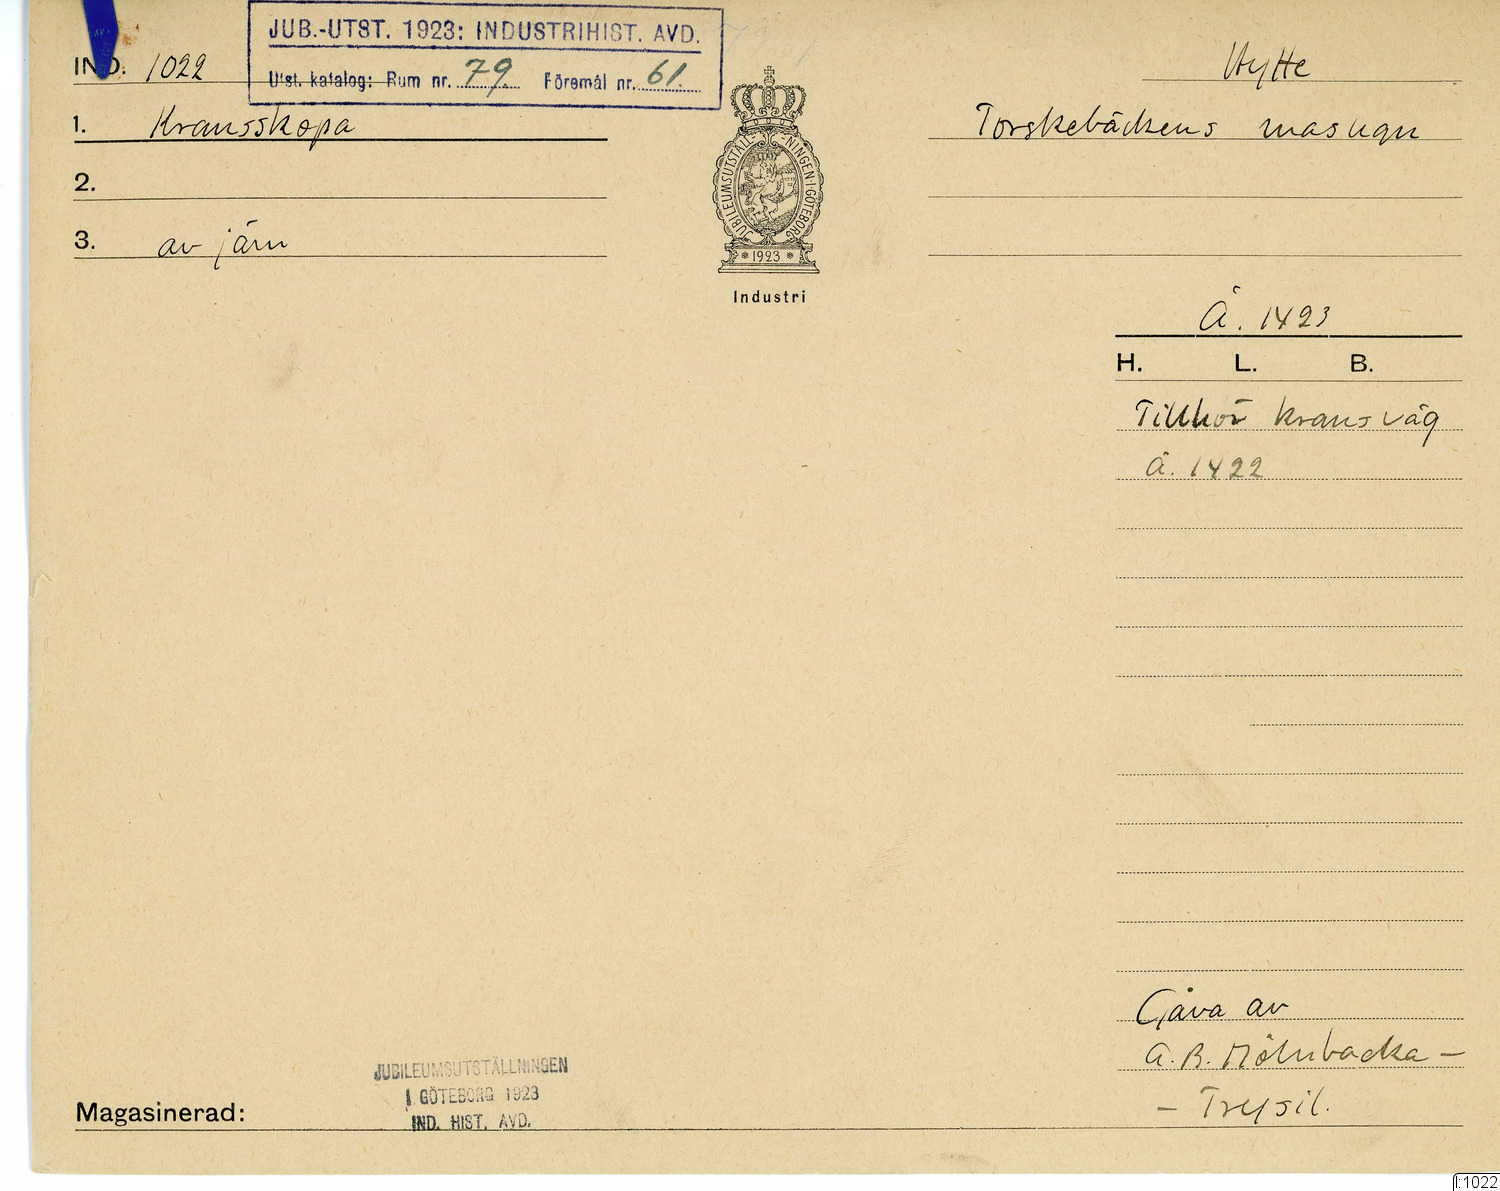 JUB.-UTST. 1923: INDUSTRIHIST. AVD.
Utst. katalog: Rum nr. 79 Föremål nr. 61
IND. 1022
Hytte
1. Kransskopa
Torskebäckens masugn
2.
3. av järn
JUBILEUMSUTSTÄLLNINGEN·I·GÖTEBORG
1923
Industri
Å. 1423
H. L. B.
Tillhör kransväg
Å. 1422
Gåva av
A.B. Mölnbacka –
– Trysil.
JUBILEUMSUTSTÄLLNINGEN
I GÖTEBORG 1923
IND. HIST. AVD.
Magasinerad:
I:1022